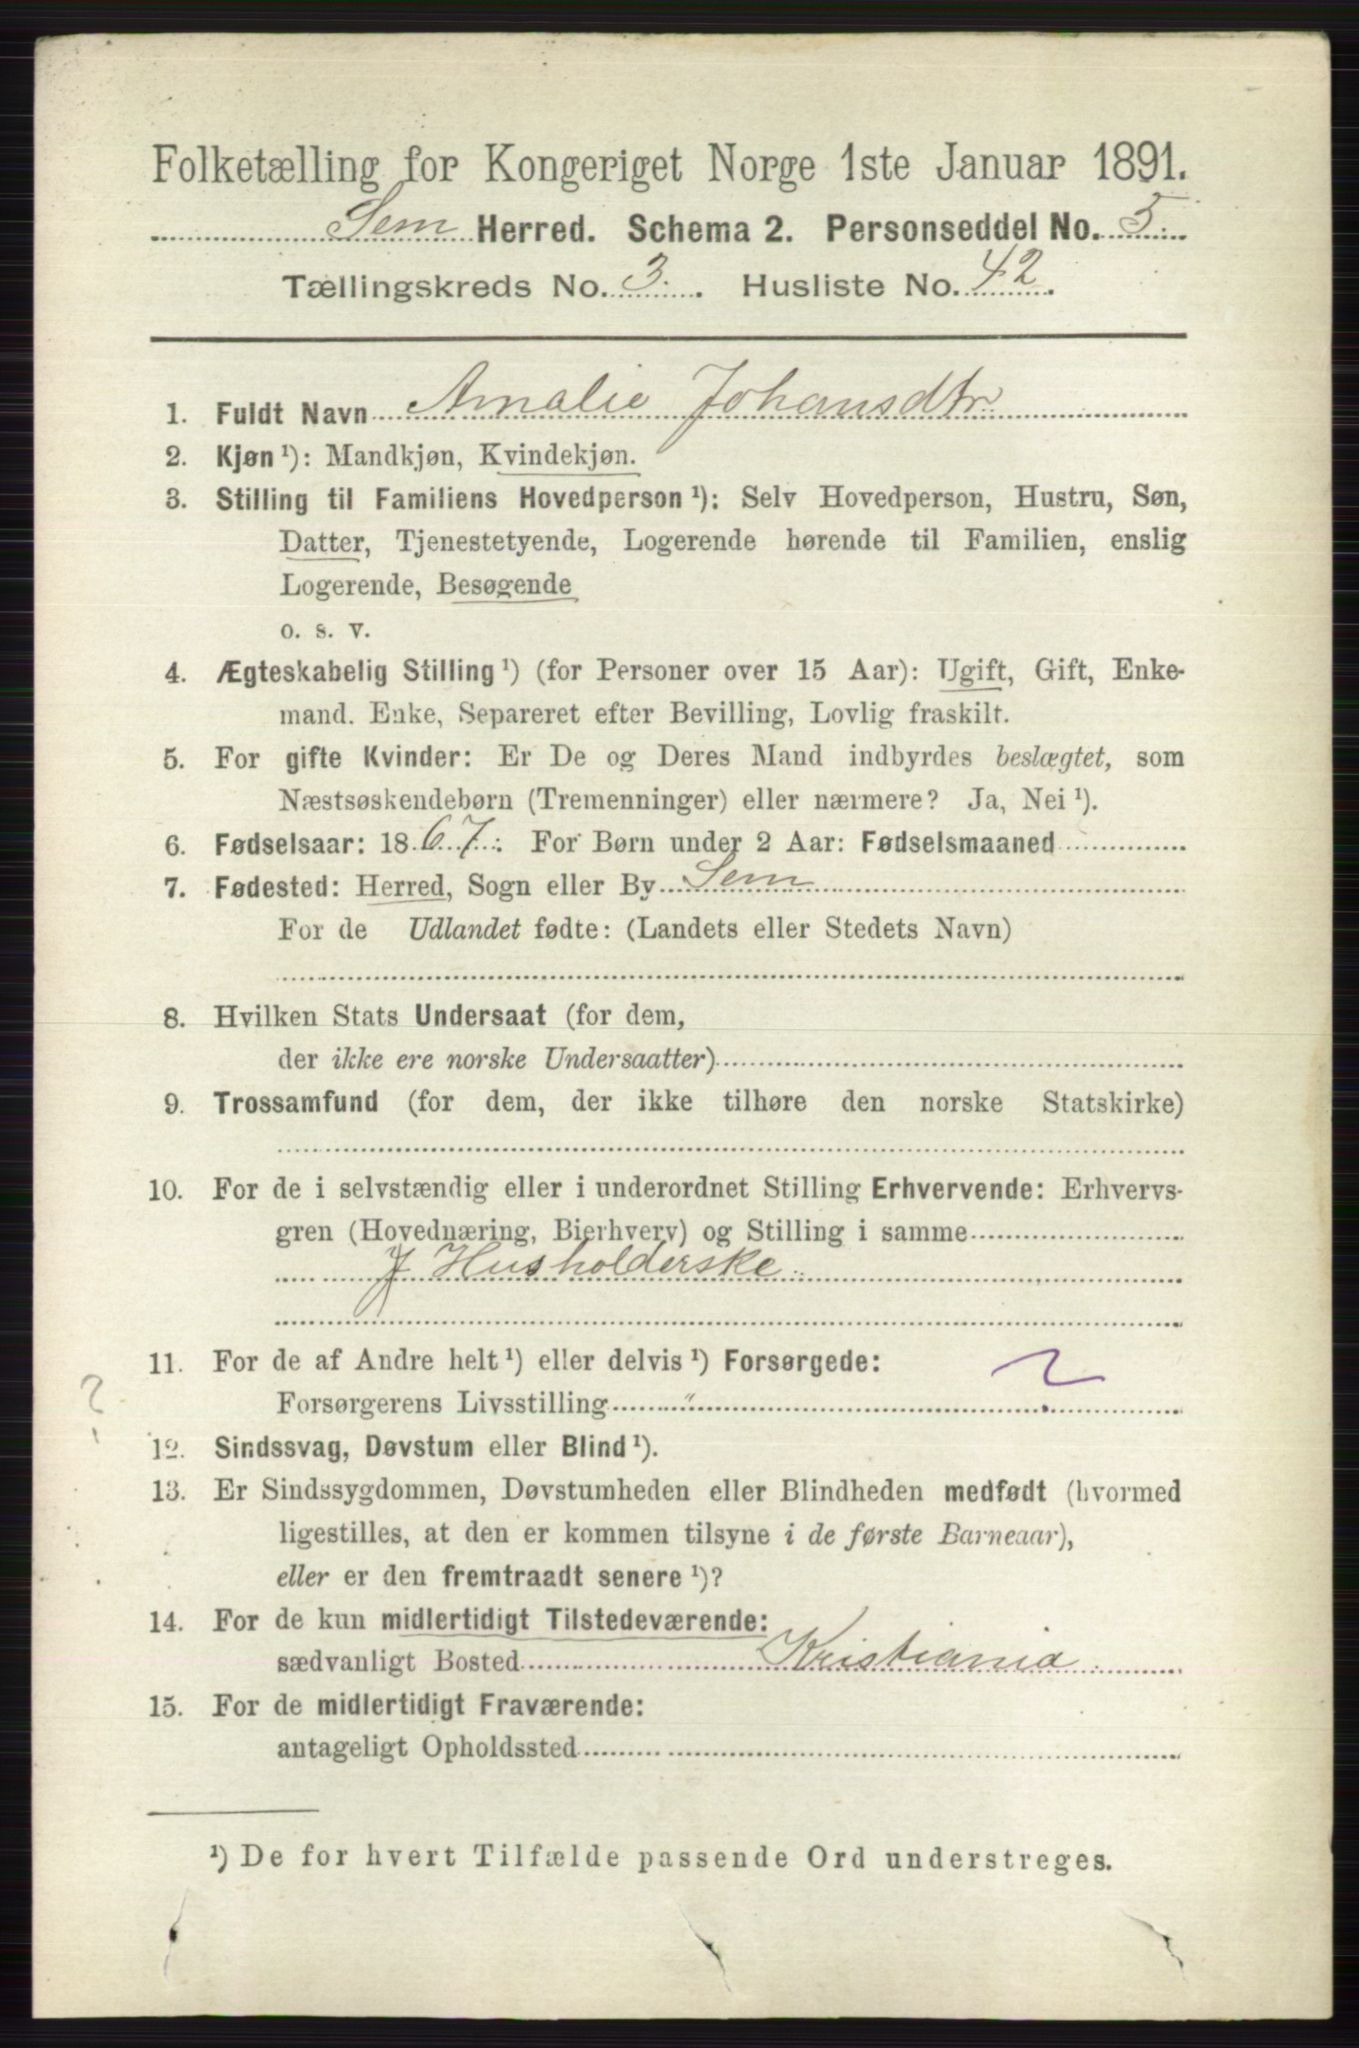 Folketælling for Kongeriget Norge 1ste Januar 1891.
Sem Herred. Schema 2. Personseddel No. 5.
Tællingskreds No. 3. Husliste No. 42.
1. Fuldt Navn Amalie Johansdtr.
2. Kjøn ¹): Mandkjøn, Kvindekjøn.
3. Stilling til Familiens Hovedperson ¹): Selv Hovedperson, Hustru, Søn,
Datter, Tjenestetyende, Logerende hørende til Familien, enslig
Logerende, Besøgende
o. s. v.
4. Ægteskabelig Stilling ¹) (for Personer over 15 Aar): Ugift, Gift, Enke-
mand. Enke, Separeret efter Bevilling, Lovlig fraskilt.
5. For gifte Kvinder: Er De og Deres Mand indbyrdes beslægtet, som
Næstsøskendebørn (Tremenninger) eller nærmere? Ja, Nei ¹).
6. Fødselsaar: 1867. For Børn under 2 Aar: Fødselsmaaned
7. Fødested: Herred, Sogn eller By Sem
For de Udlandet fødte: (Landets eller Stedets Navn)
8. Hvilken Stats Undersaat (for dem,
der ikke ere norske Undersaatter)
9. Trossamfund (for dem, der ikke tilhøre den norske Statskirke)
10. For de i selvstændig eller i underordnet Stilling Erhvervende: Erhvervs-
gren (Hovednæring, Bierhverv) og Stilling i samme
J Husholderske
11. For de af Andre helt ¹) eller delvis ¹) Forsørgede: 2
Forsørgerens Livsstilling "
?
12. Sindssvag, Døvstum eller Blind ¹).
13. Er Sindssygdommen, Døvstumheden eller Blindheden medfødt (hvormed
ligestilles, at den er kommen tilsyne i de første Barneaar),
eller er den fremtraadt senere ¹)?
14. For de kun midlertidigt Tilstedeværende:
sædvanligt Bosted Kristiania
15. For de midlertidigt Fraværende:
antageligt Opholdssted
¹) De for hvert Tilfælde passende Ord understreges.